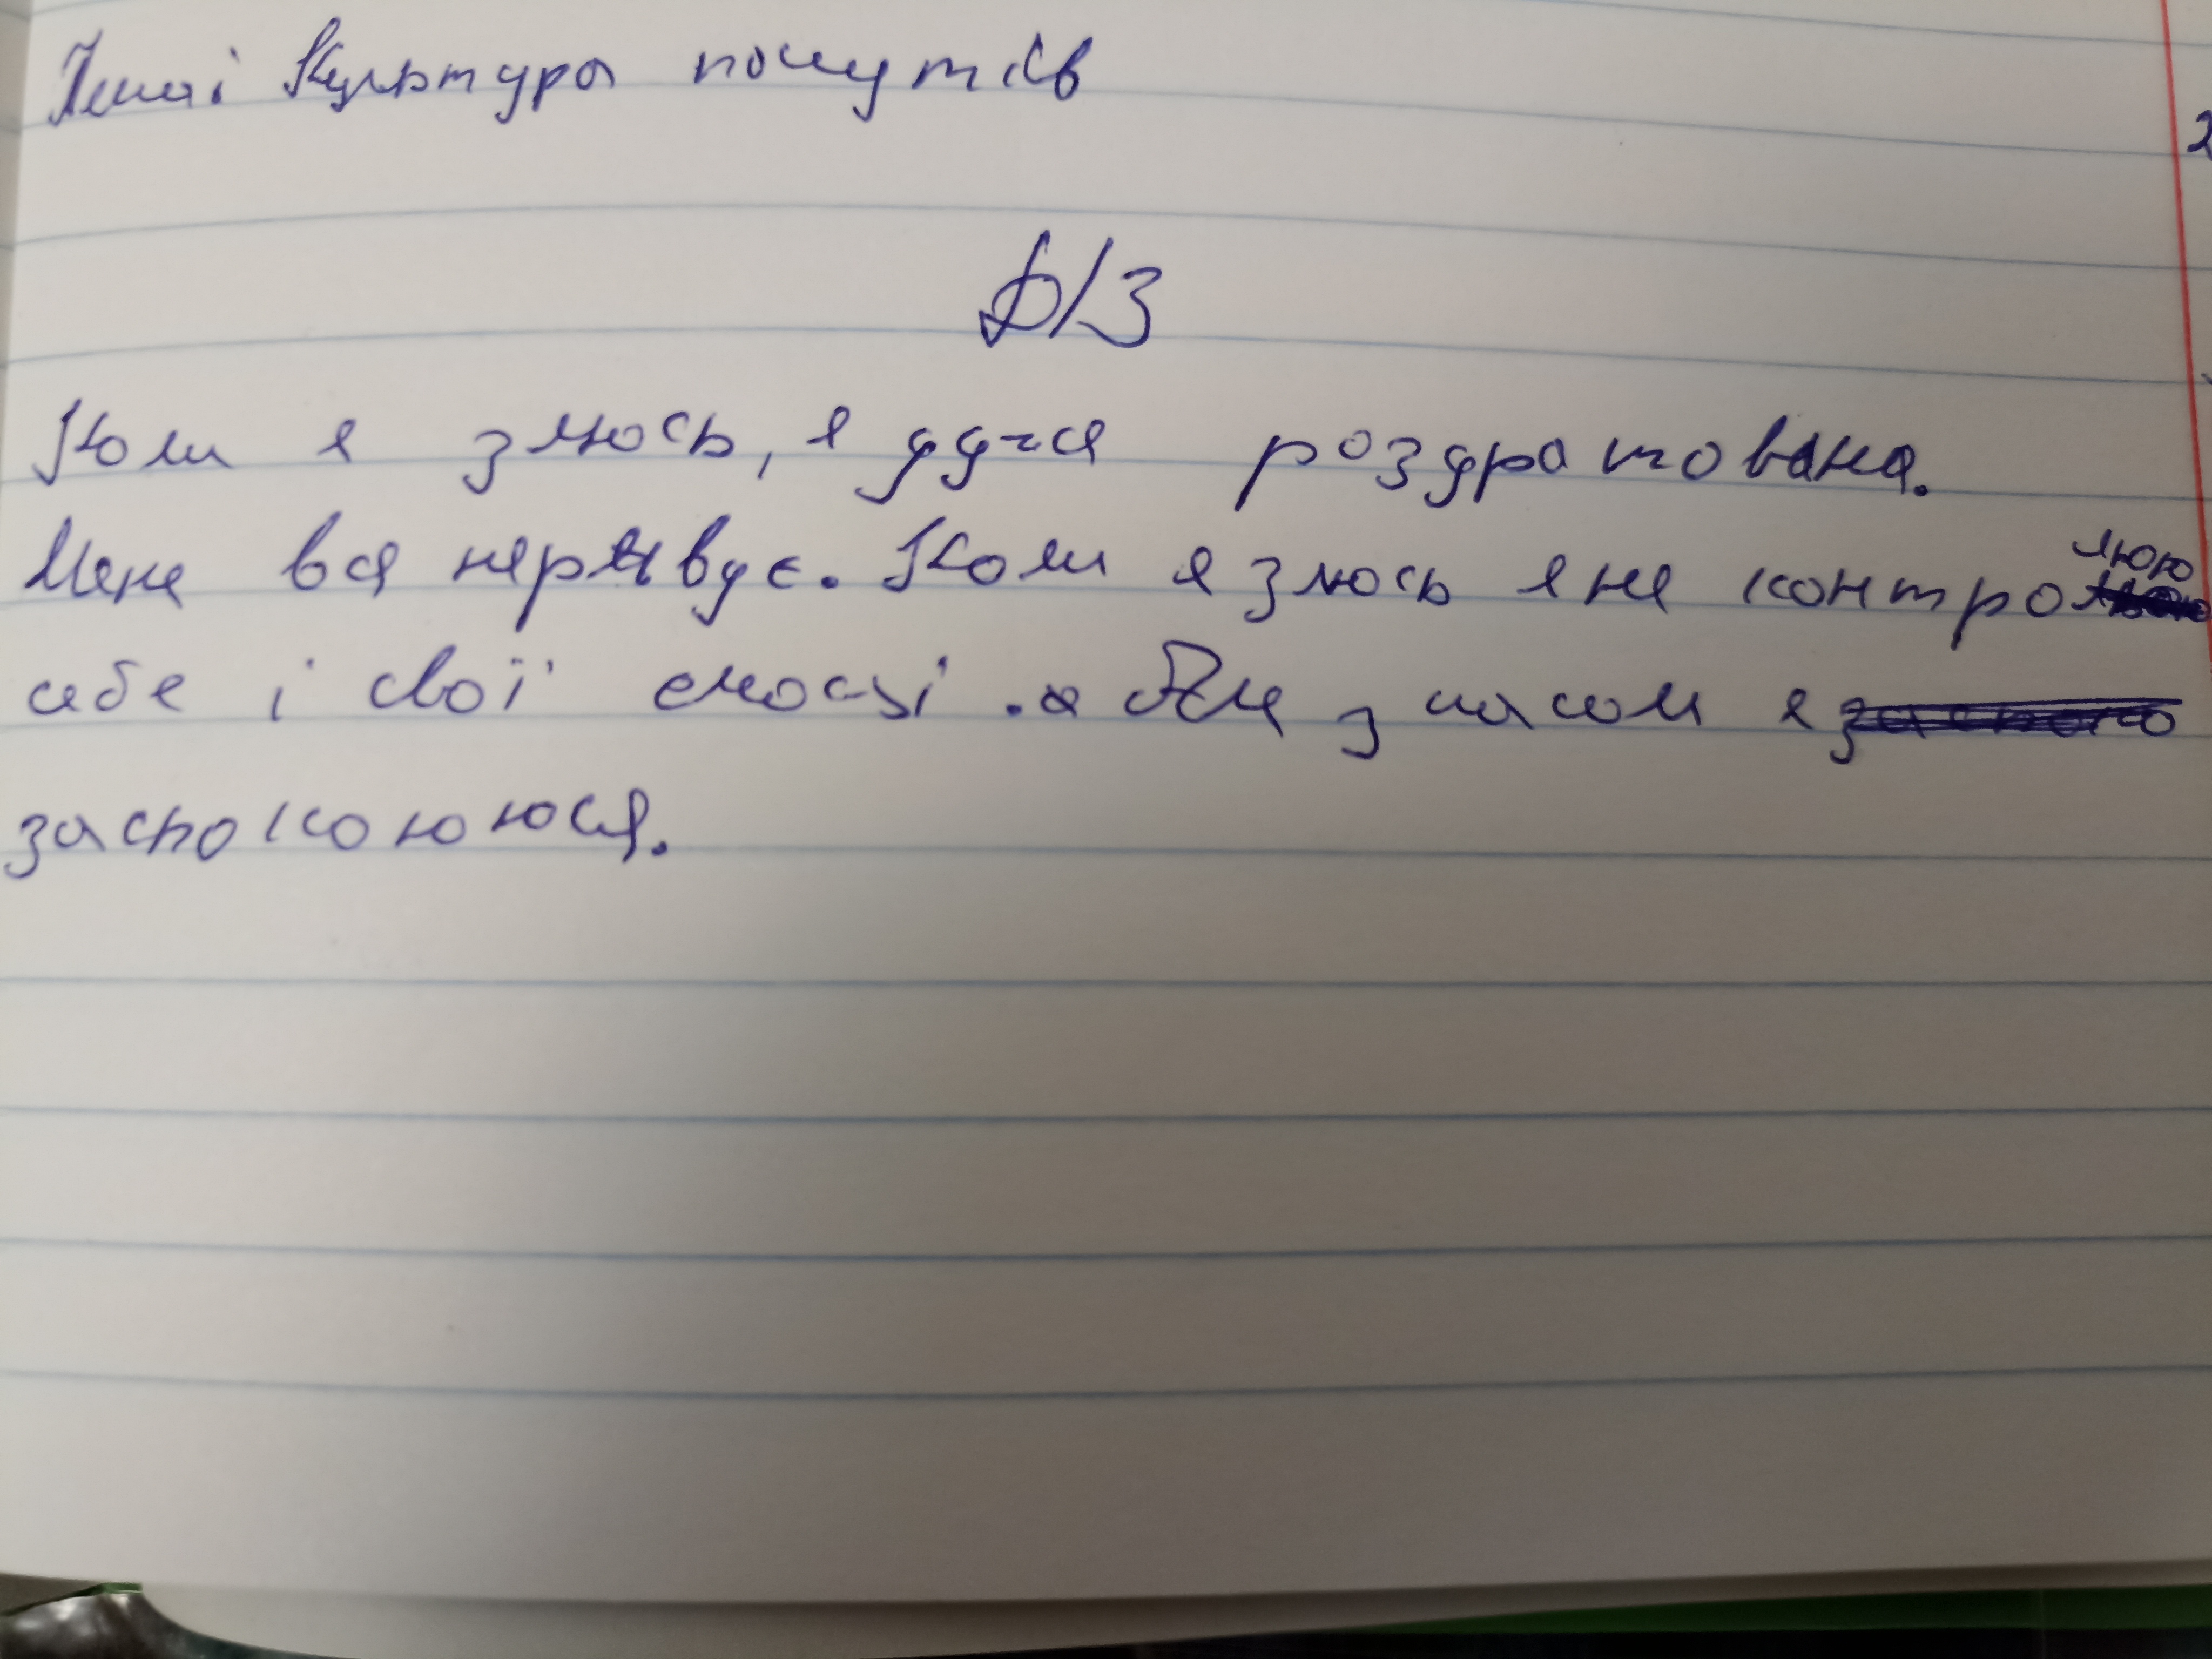 Тема: Культура почуттів
Д/З
Коли я злюсь, я дуже роздратована.
Мене вся нервує. Коли я злюсь я не контролюю
себе і свої емоції. Але з часом я
заспокоююся.